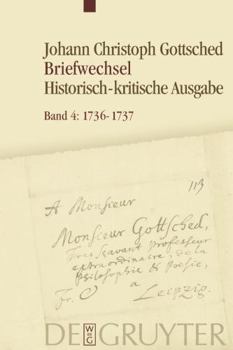 Johann Christoph Gottsched
Briefwechsel
Historisch-kritische Ausgabe
Band 4: 1736-1737
113
A Monsieur
Monsieur Gottsched,
Tres savant Professeur
extraordinaire, de la
Philosophie & Poesie,
Fr.
a
Leipzig.
DE GRUYTER
W
DE
G